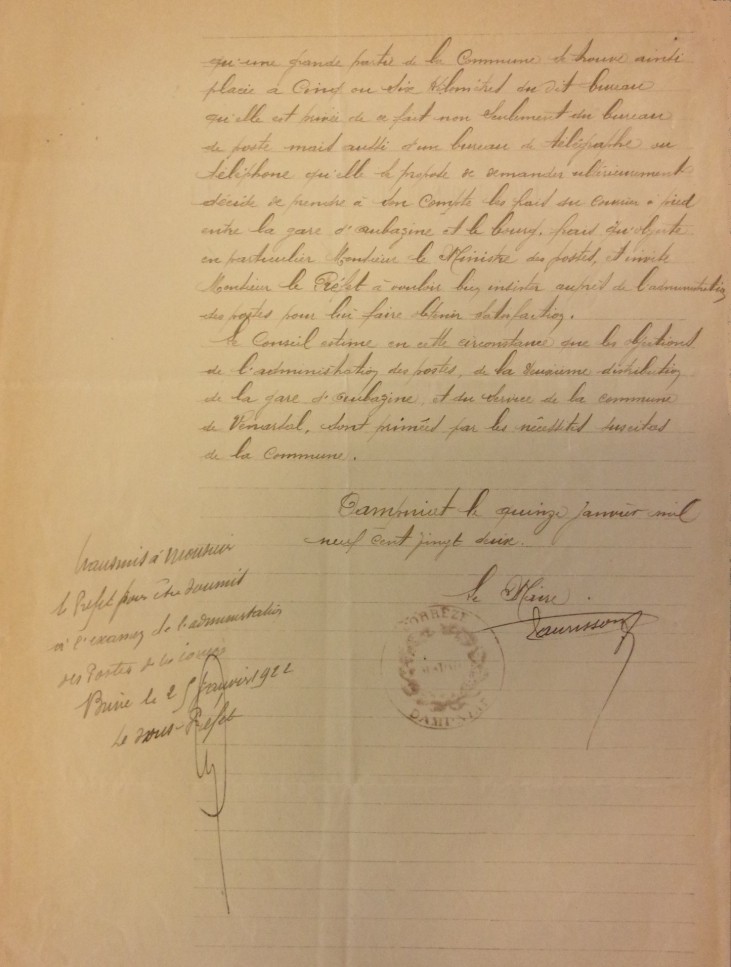 qu'une grande partie de la Commune se trouve ainsi
placée à Cinq ou Six kilomètres du dit bureau
qu'elle est privée de ce fait non seulement du bureau
de poste mais aussi d'un bureau de télégraphe ou
téléphone qu'elle se propose de demander ultérieurement
décide de prendre à son compte les frais du courrier à pied
entre la gare d'Aubazine et le bourg, frais qu'objecte
en particulier Monsieur le Ministre des postes, et invite
Monsieur le Préfet à vouloir bien insister auprès de l'administration
des postes pour lui faire obtenir satisfaction.
Le Conseil estime en cette circonstance que les objections
de l'administration des postes, de la deuxième distribution
de la gare d'Aubazine, et du service de la commune
de Venarsal, sont primées par les nécessités
de la Commune.
Dampniat le quinze janvier mil
neuf cent vingt deux.
Le Maire.
CORRÈZE
DAMPNIAT
Transmis à Monsieur
le Préfet pour être soumis
à l'examen de l'administration
des Postes de la Corrèze
Brive le 25 Janvier 1922
Le Sous-Préfet